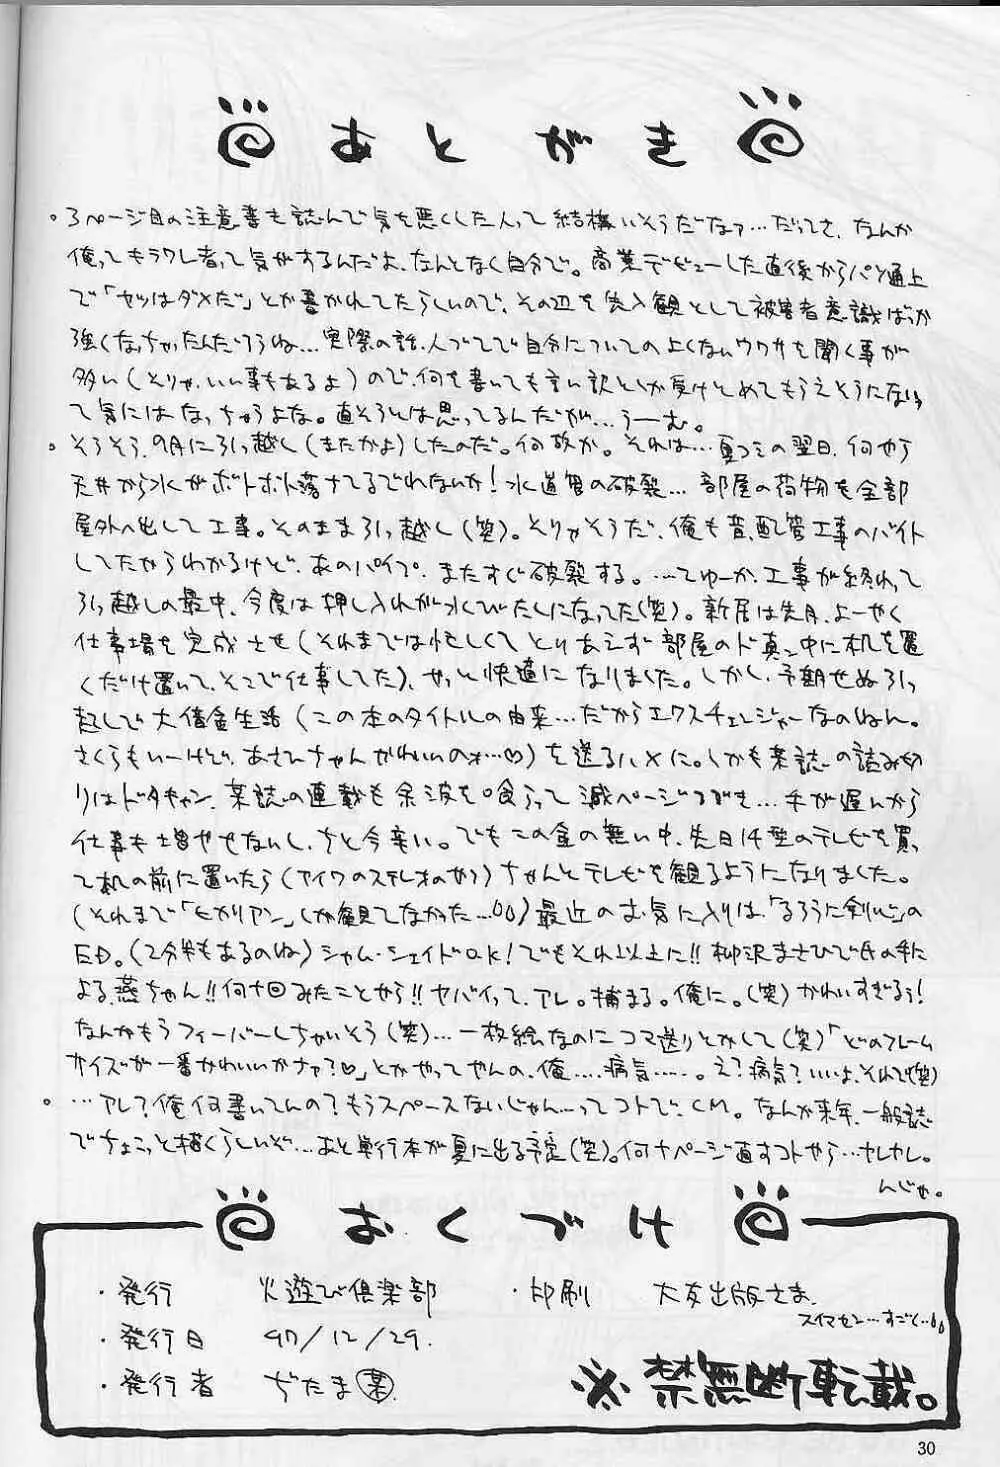 あとがき
。3ページ目の注意書を読んで気を悪くした人って結構いそうだなァ…だってさ、なんか
俺ってキラワレ者って気がするんだよ、なんとなく自分で。商業デビューした直後からパソ通上
で「ヤツはダメだ」とか書かれてたらしいので、その辺を先入観として被害者意識ばっか
強くなっちゃったんだろうね…実際の話、人づてで自分についての良くないウワサを聞く事が
多い(そりゃ、いい事もあるよ)ので、何を書いても言い訳としか受けとめてもらえそうにないっ
て気にはなっちゃうよな。直そうとは思ってるんだが…うーむ。
。そうそう、9月に引っ越し(またかよ)したのだ。何故か。それは…夏コミの翌日、何やら
天井から水がボトボト落ちてるでわないか!水道管の破裂…部屋の荷物を全部
屋外へ出して工事。そのまま引っ越し(笑)。そりゃそうだ、俺も昔、配管工事のバイト
してたからわかるけど、あのパイプ、またすぐ破裂する。…てゆーか、工事が終わって
引っ越しの最中、今度は押し入れが水びたしになってた(笑)。新居は先月、よーやく
仕事場を完成させ(それまでは忙しくてとりあえず部屋のド真ン中に机を置
くだけ置いて、そこで仕事してた)、やっと快適になりました。しかし、予期せぬ引っ
越しで大借金生活(この本のタイトルの由来…だからエクスチェンジャーなのねん。
さくらもいーけど、あさひちゃんかわいいのォ…♡)を送るハメに。しかも某誌の読み切
りはドタキャン、某誌の連載も余波を喰らって減ページ
手が遅いから
仕事も増やせないし、ちと今辛い。でもこの金の無い中、先日14型のテレビを買っ
て机の前に置いたら(アイワのステレオのやつ)ちゃんとテレビを観るようになりました。
(それまで「ヒカリアン」しか観てなかった…)最近のお気に入りは、「るろうに剣心」の
ED。(2分半もあるのね)シャム・シェイドOK!でもそれ以上に!!柳沢まさひで氏の手に
よる燕ちゃん!!何十回みたことやら!!ヤバイって、アレ。捕まる。俺に。(笑)かわいすぎるぅ!
なんかもうフィーバーしちゃいそう(笑)…一枚絵なのにコマ送りとかして(笑)「どのフレーム
サイズが一番かわいいかナァ?♡」とかやってやんの、俺……病気……。え?病気?いいよ、それで(笑)
。…アレ?俺何書いてんの?もうスペースないじゃん…ってコトで、CM。なんか来年、一般誌
でちょこっと描くらしいぞ…あと単行本が夏に出る予定(笑)。何十ページ直すコトやら…ヤレヤレ。
んじゃ。
おくづけ
・発行 火遊び倶楽部 ・印刷 大友出版さま
スイマセン…すごく…
・発行日 97/12/29.
・発行者 ぢたま(某)
※禁無断転載。
30